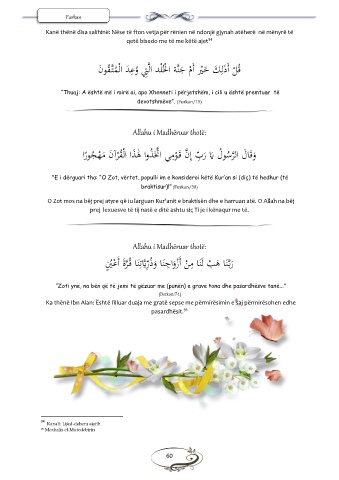 Furkan
Kanë thënë disa salihinë: Nëse të fton vetja për rënien në ndonjë gjynah atëherë në mënyrë të
qetë bisedo me të me këtë ajet³⁴
قُلْ أَذَٰلِكَ خَيْرٌ أَمْ جَنَّةُ الْخُلْدِ الَّتِي وُعِدَ الْمُتَّقُونَ
"Thuaj: A është më i mirë ai, apo Xhenneti i përjetshëm, i cili u është premtuar të
devotshmëve". (Furkan/15)
Allahu i Madhëruar thotë:
وَقَالَ الرَّسُولُ يَا رَبِّ إِنَّ قَوْمِي اتَّخَذُوا هَٰذَا الْقُرْآنَ مَهْجُورًا
"E i dërguari tha: "O Zot, vërtet, populli im e konsideroi këtë Kur'an si (diç) të hedhur (të
braktisur)!" (Furkan/30)
O Zot mos na bëj prej atyre që iu larguan Kur'anit e braktisën dhe e harruan atë. O Allah na bëj
prej lexuesve të tij natë e ditë ashtu siç Ti je i kënaqur me të.
Allahu i Madhëruar thotë:
رَبَّنَا هَبْ لَنَا مِنْ أَزْوَاجِنَا وَذُرِّيَّاتِنَا قُرَّةَ أَعْيُنٍ
"Zoti ynë, na bën që të jemi të gëzuar me (punën) e grave tona dhe pasardhësve tanë..."
(Furkan/74)
Ka thënë Ibn Alan: Është filluar duaja me gratë sepse me përmirësimin e saj përmirësohen edhe
pasardhësit.³⁵
60